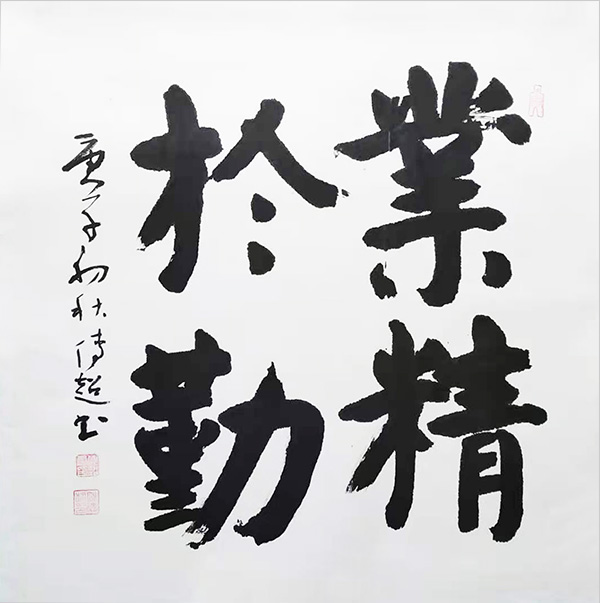 業精
於勤
庚子初秋傳超书